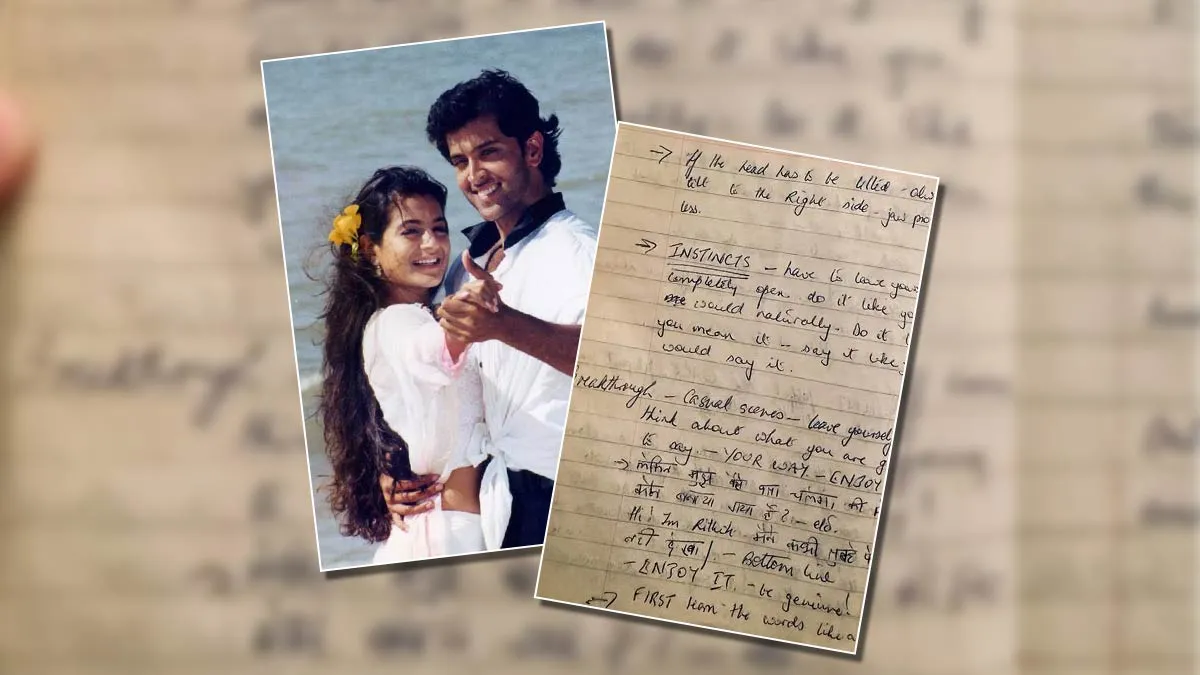 → If the head has to be tilted - alw
tilt to the Right side - jaw pro
less.
→ INSTINCTS - have to leave your
completely open. do it like yo
would naturally. Do it l
you mean it - say it like
would say it.
reakthrough - Casual scenes - leave yoursel
think about what you are g
to say. - YOUR WAY. - ENJOY
→ लेकिन मुझे
बनाया गया है? - etc.
Hi! Im Rithik मैंने कभी
नहीं देखा - Bottom line
- ENJOY IT. - be genuine!
→ FIRST learn the words like a